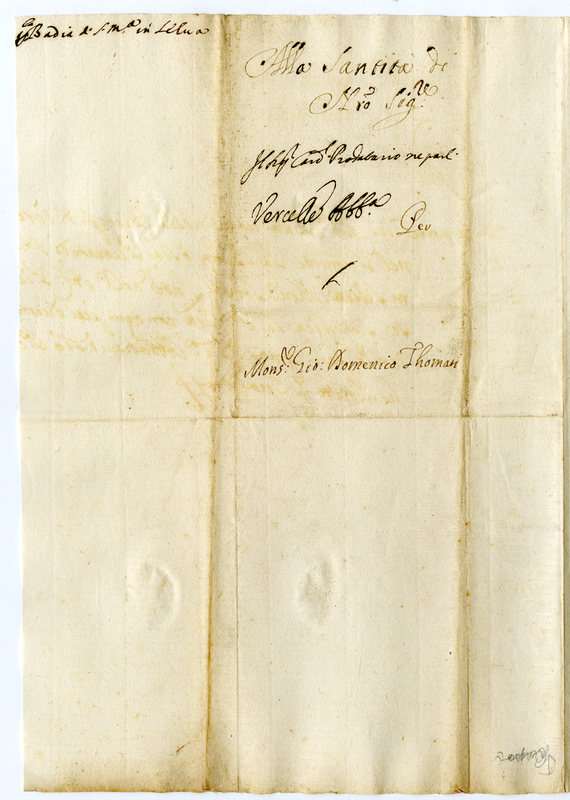 Badia di S. M.ª in Selva
Alla Santità di
Nr̃o Sig.re
Card. Prodatario ne parl.
Vercelle Abb.ª
Per
Mons.r Gio: Domenico Thomati